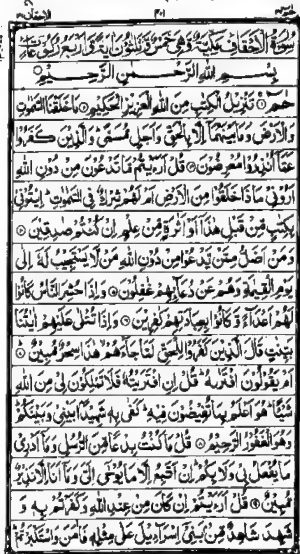 الاحقاف ٤٦
٤٠١
حم ٢٦
سُوْرَةُ الْاَحْقَافِ مَكِّيَّةٌ وَّهِيَ خَمْسٌ وَّثَلٰثُوْنَ اٰيَةً وَّاَرْبَعُ رُكُوْعَاتٍ
بِسْمِ اللّٰهِ الرَّحْمٰنِ الرَّحِيْمِ
حٰمٓ ۚ تَنْزِيْلُ الْكِتٰبِ مِنَ اللّٰهِ الْعَزِيْزِ الْحَكِيْمِ مَا خَلَقْنَا السَّمٰوٰتِ
وَالْاَرْضَ وَمَا بَيْنَهُمَآ اِلَّا بِالْحَقِّ وَاَجَلٍ مُّسَمًّى وَالَّذِيْنَ كَفَرُوْا
عَمَّآ اُنْذِرُوْا مُعْرِضُوْنَ قُلْ اَرَءَيْتُمْ مَّا تَدْعُوْنَ مِنْ دُوْنِ اللّٰهِ
اَرُوْنِيْ مَاذَا خَلَقُوْا مِنَ الْاَرْضِ اَمْ لَهُمْ شِرْكٌ فِي السَّمٰوٰتِ اِيْتُوْنِيْ
بِكِتٰبٍ مِّنْ قَبْلِ هٰذَآ اَوْ اَثٰرَةٍ مِّنْ عِلْمٍ اِنْ كُنْتُمْ صٰدِقِيْنَ
وَمَنْ اَضَلُّ مِمَّنْ يَّدْعُوْا مِنْ دُوْنِ اللّٰهِ مَنْ لَّا يَسْتَجِيْبُ لَهٗٓ اِلٰى
يَوْمِ الْقِيٰمَةِ وَهُمْ عَنْ دُعَآئِهِمْ غٰفِلُوْنَ وَاِذَا حُشِرَ النَّاسُ كَانُوْا
لَهُمْ اَعْدَآءً وَّكَانُوْا بِعِبَادَتِهِمْ كٰفِرِيْنَ وَاِذَا تُتْلٰى عَلَيْهِمْ اٰيٰتُنَا
بَيِّنٰتٍ قَالَ الَّذِيْنَ كَفَرُوْا لِلْحَقِّ لَمَّا جَآءَهُمْ هٰذَا سِحْرٌ مُّبِيْنٌ
اَمْ يَقُوْلُوْنَ افْتَرٰىهُ قُلْ اِنِ افْتَرَيْتُهٗ فَلَا تَمْلِكُوْنَ لِيْ مِنَ اللّٰهِ
شَيْـًٔا هُوَ اَعْلَمُ بِمَا تُفِيْضُوْنَ فِيْهِ كَفٰى بِهٖ شَهِيْدًۢا بَيْنِيْ وَبَيْنَكُمْ
وَهُوَ الْغَفُوْرُ الرَّحِيْمُ قُلْ مَا كُنْتُ بِدْعًا مِّنَ الرُّسُلِ وَمَآ اَدْرِيْ
مَا يُفْعَلُ بِيْ وَلَا بِكُمْ اِنْ اَتَّبِعُ اِلَّا مَا يُوْحٰٓى اِلَيَّ وَمَآ اَنَا اِلَّا نَذِيْرٌ
مُّبِيْنٌ قُلْ اَرَءَيْتُمْ اِنْ كَانَ مِنْ عِنْدِ اللّٰهِ وَكَفَرْتُمْ بِهٖ وَ
شَهِدَ شَاهِدٌ مِّنْۢ بَنِيْٓ اِسْرَآءِيْلَ عَلٰى مِثْلِهٖ فَاٰمَنَ وَاسْتَكْبَرْتُمْ